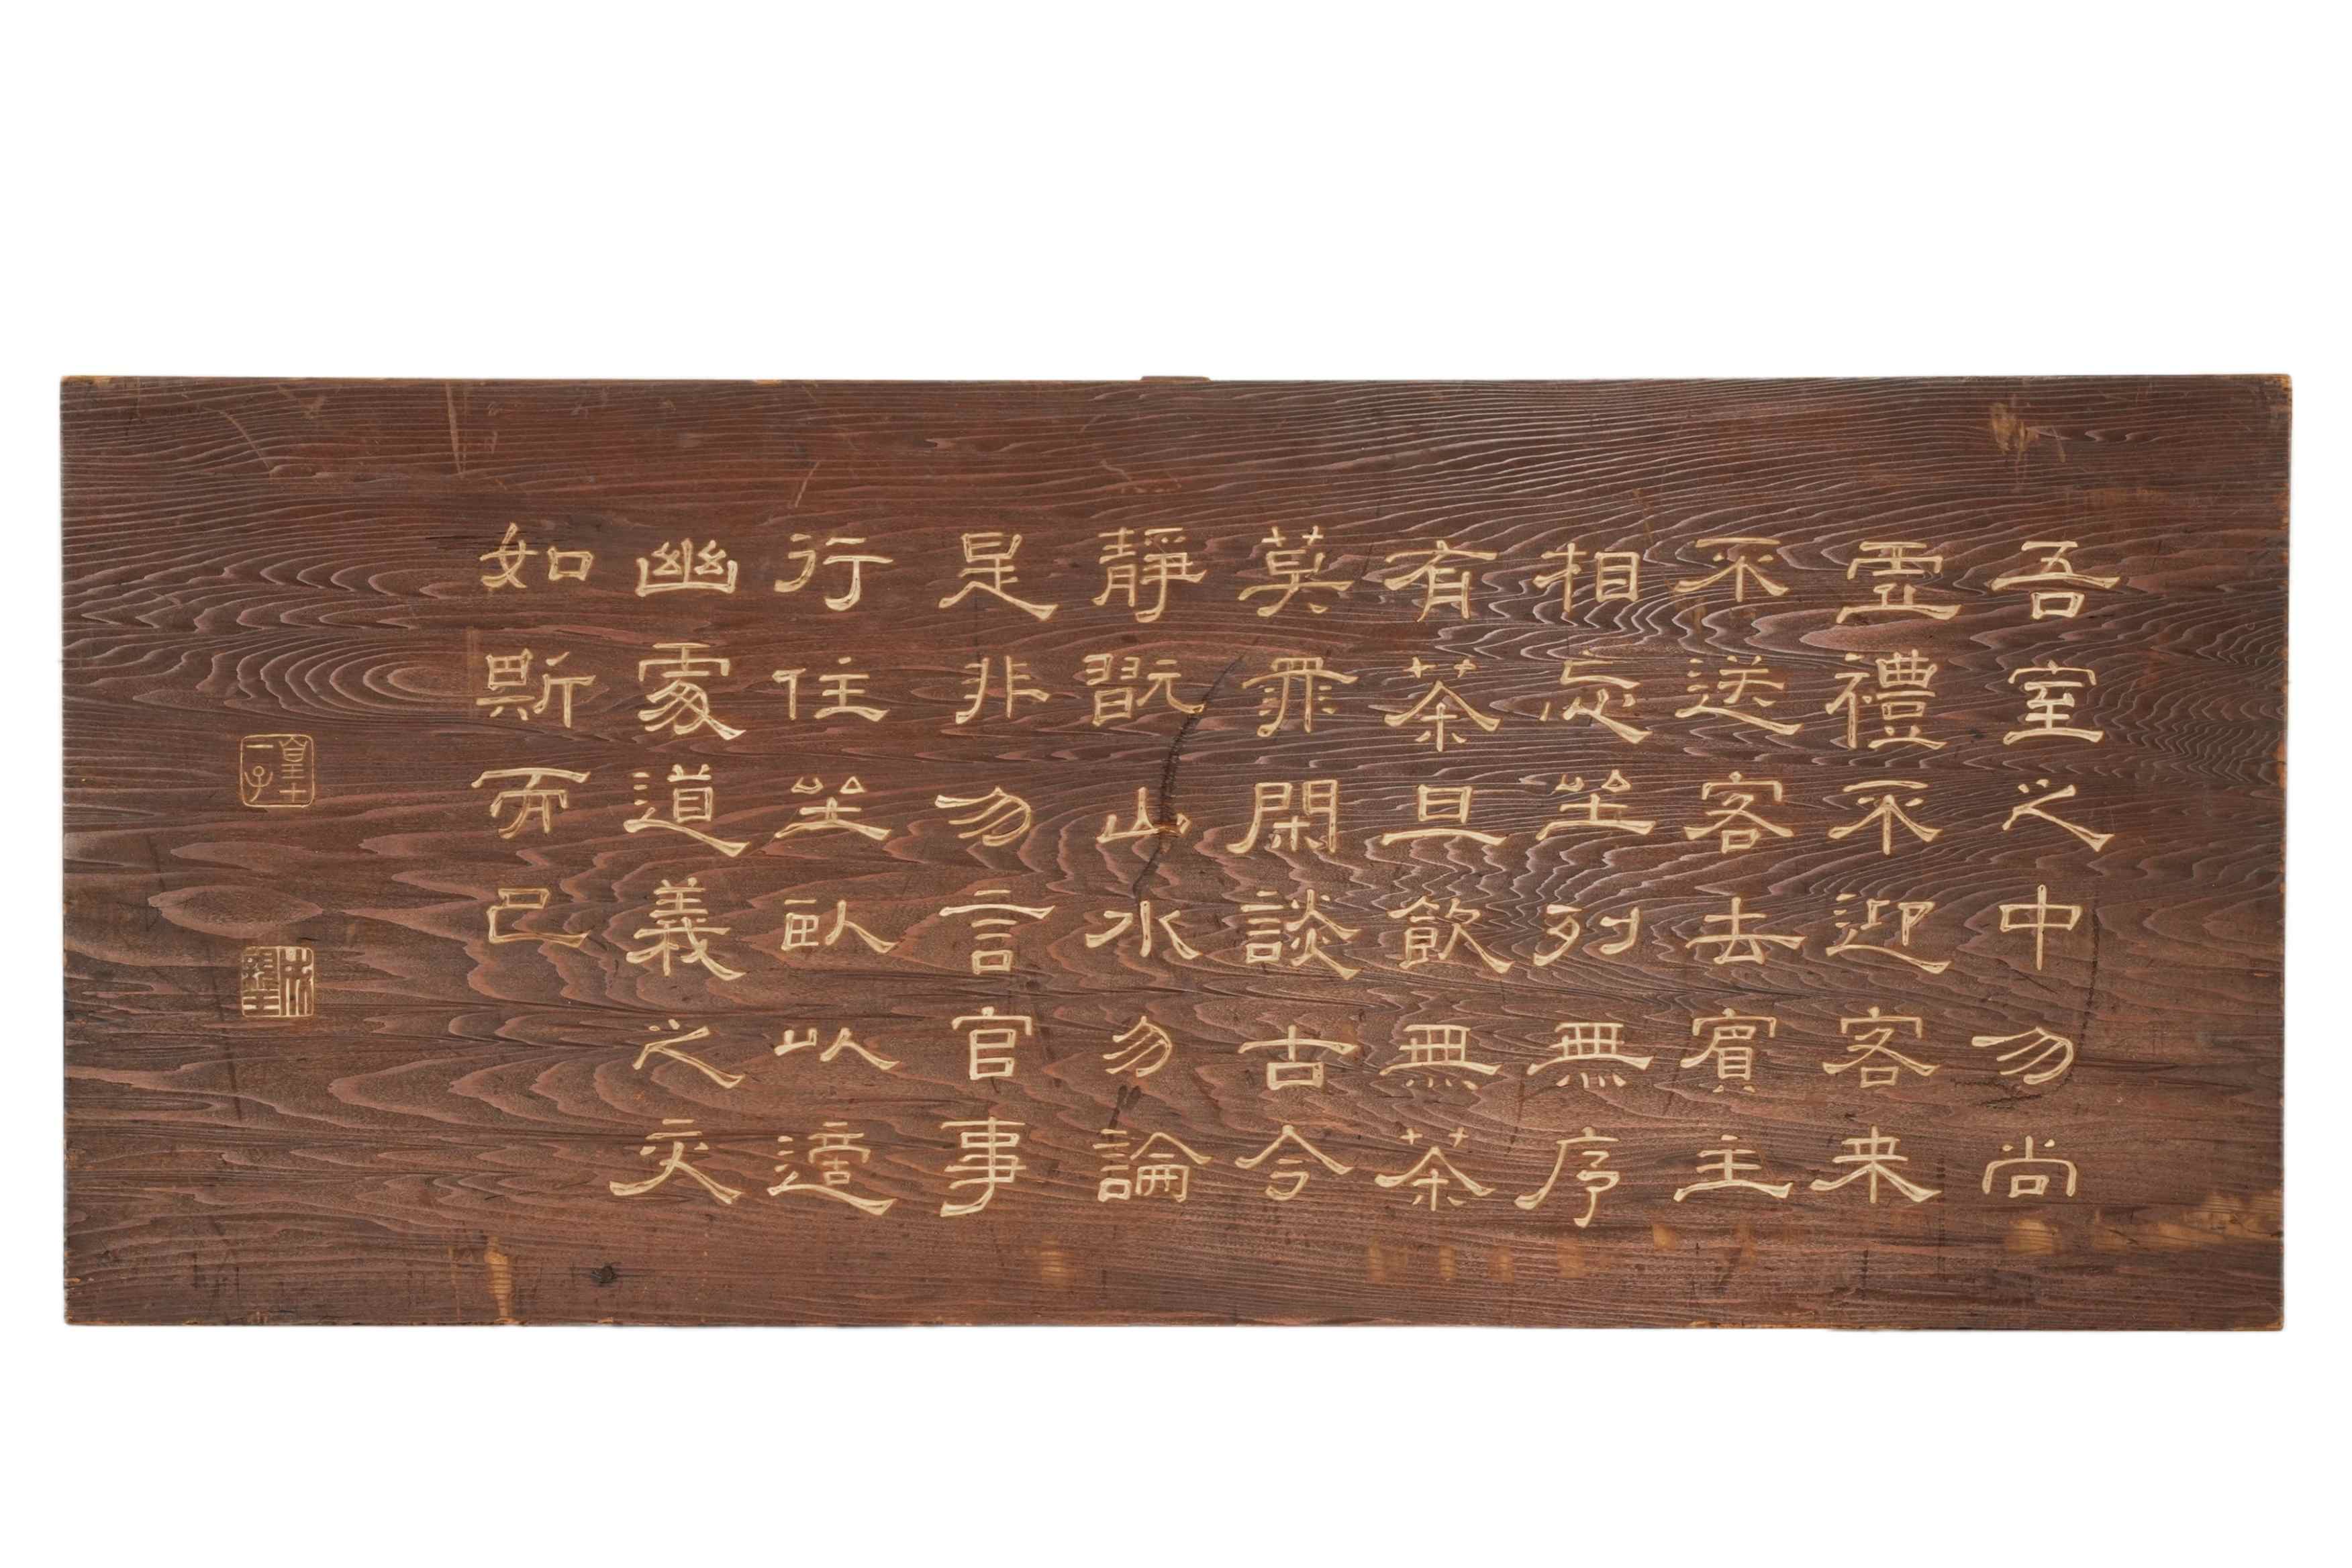 吾室之中勿尚
虛禮不迎客来
不送客去賓主
相忘坐列無序
有茶且飲無茶
莫罪閑談古今
靜翫山水勿論
是非勿言官事
行住坐臥以適
幽處道義之交
如斯而已